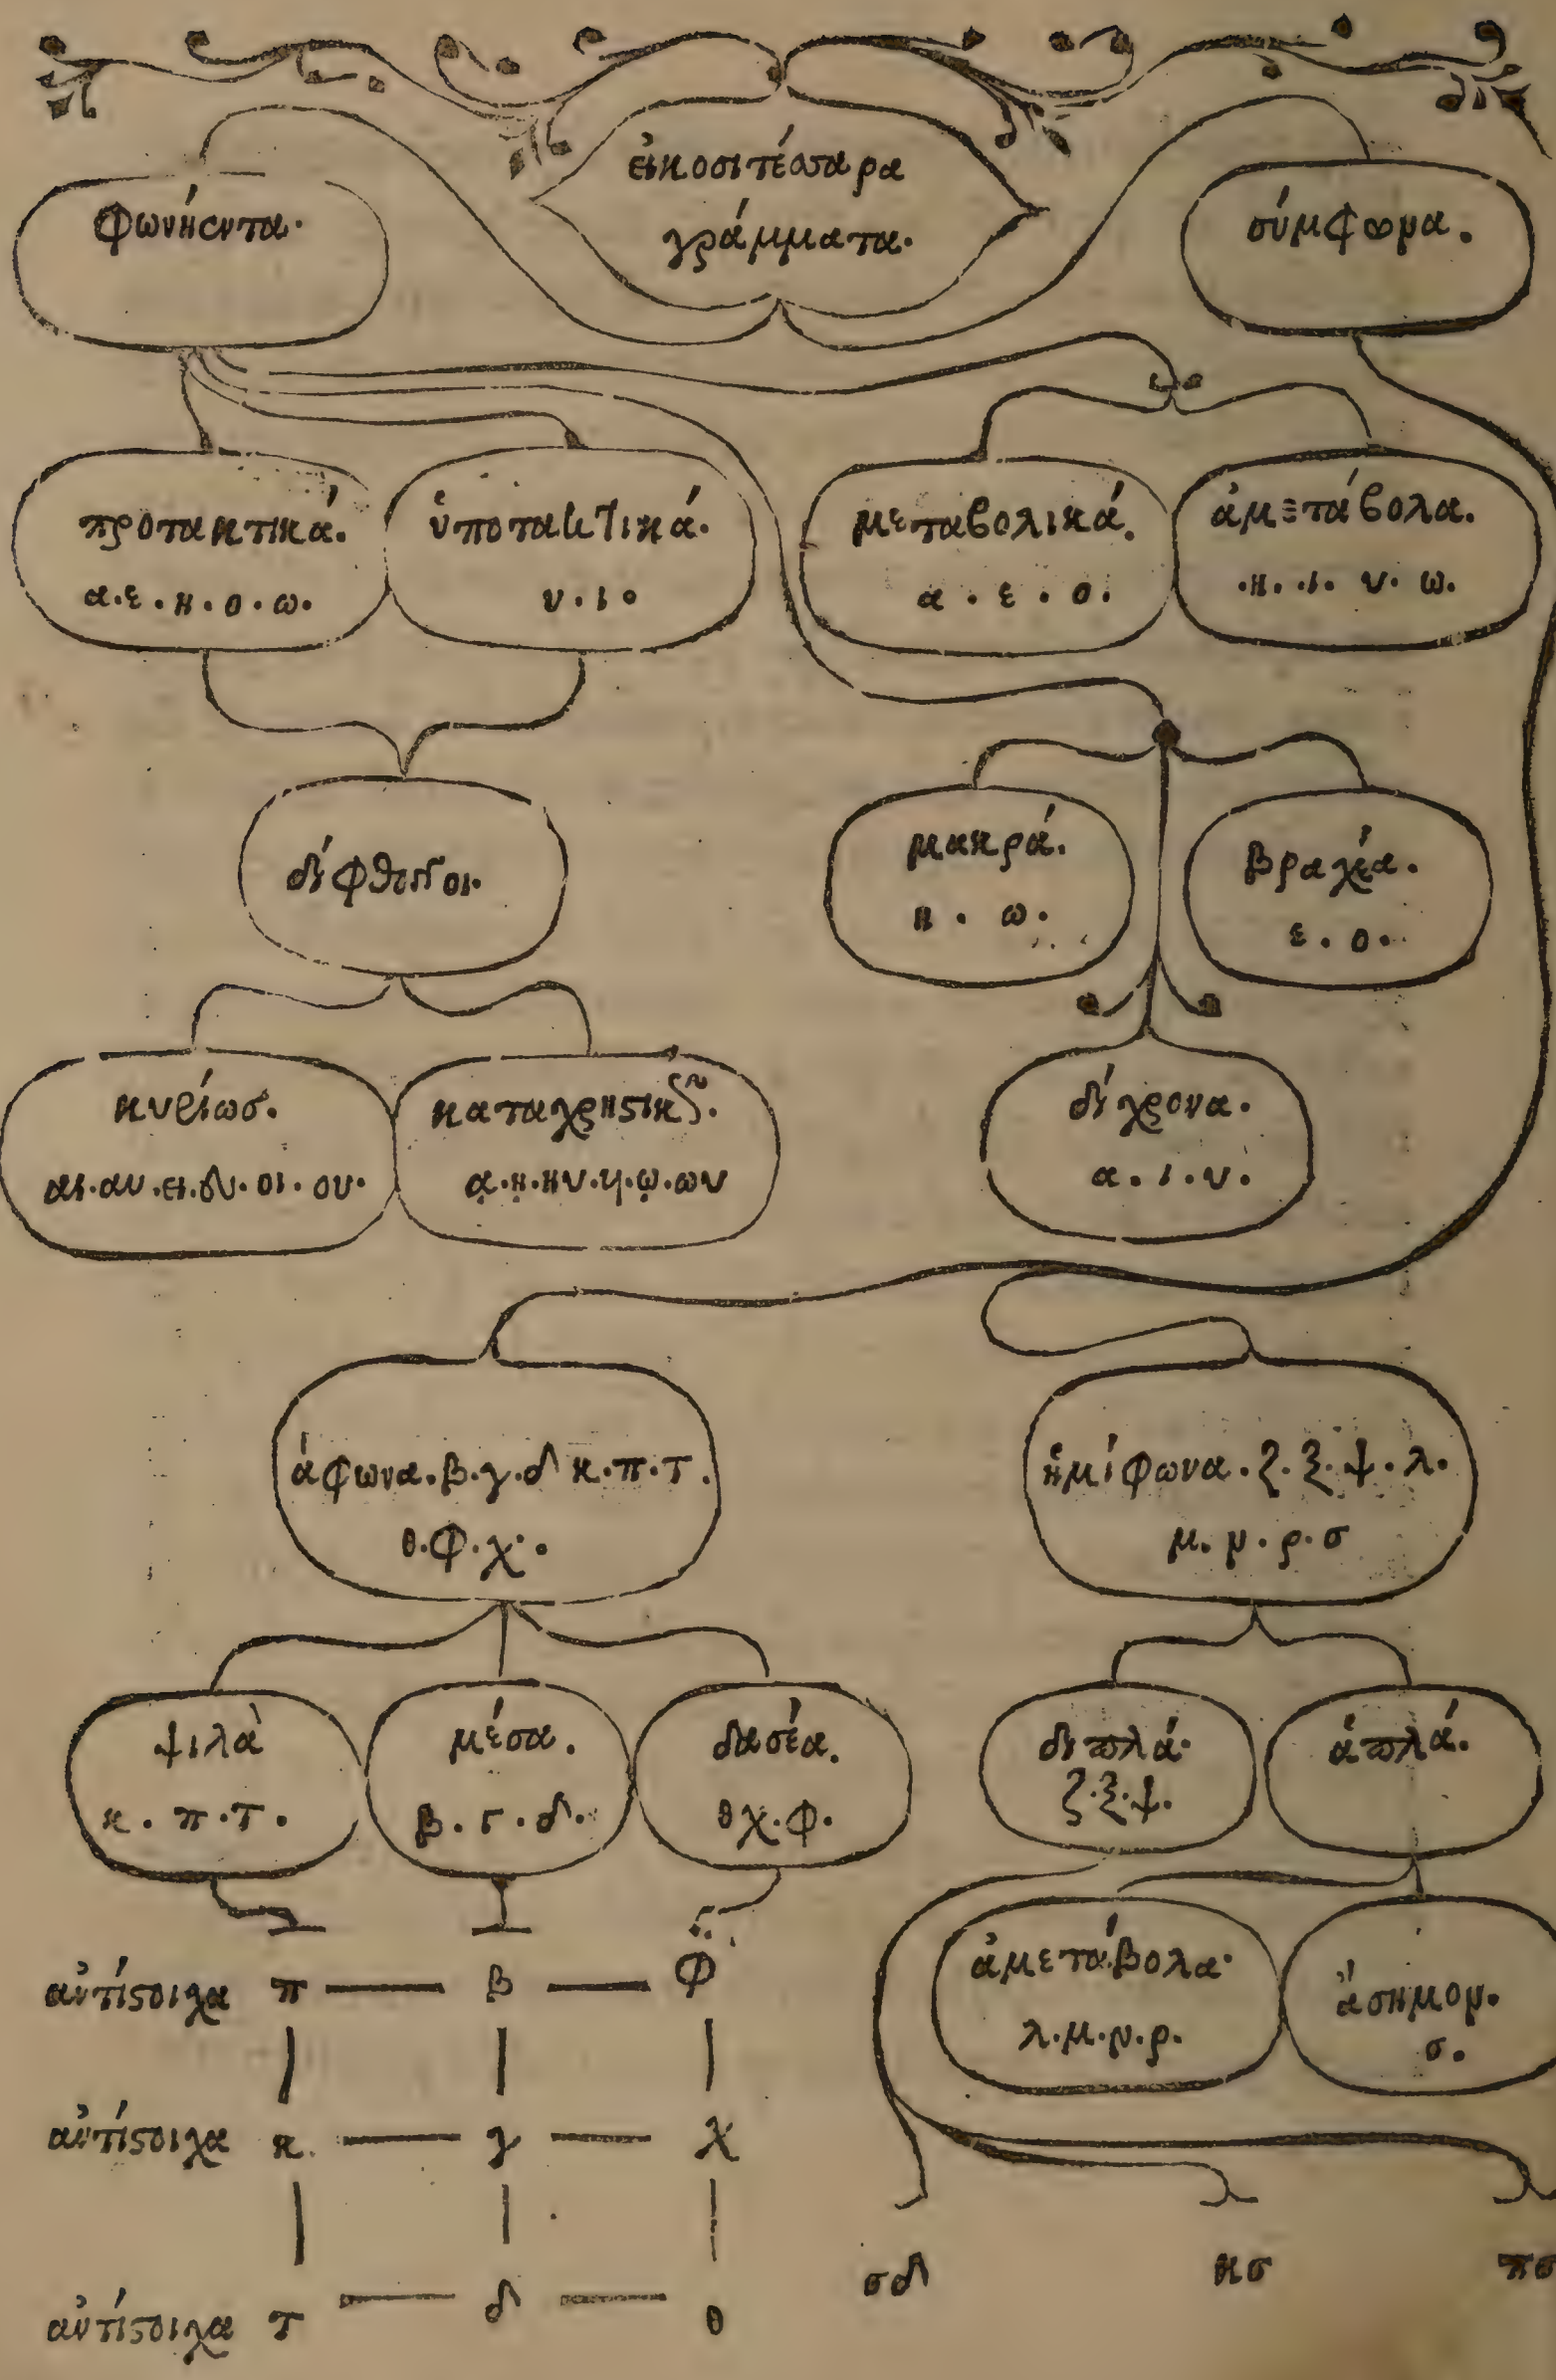 εἰκοσιτέσσαρα
γράμματα.
φωνήεντα.
σύμφωνα.
προτακτικά.
α.ε.η.ο.ω.
ὑποτακτικά.
υ.ι.
μεταβολικά.
α.ε.ο.
ἀμετάβολα.
.η.ι.υ.ω.
δίφθογγοι.
μακρά.
η.ω.
βραχέα.
ε.ο.
κυρίωσ.
αι.αυ.ει.ευ.οι.ου.
καταχρηστικῶς.
ᾳ.ῃ.ηυ.υι.ῳ.ωυ
δίχρονα.
α.ι.υ.
ἄφωνα.β.γ.δ κ.π.τ.
θ.φ.χ.
ἡμίφωνα.ζ.ξ.ψ.λ.
μ.ν.ρ.σ
ψιλὰ
κ.π.τ.
μέσα.
β.γ.δ.
δασέα.
θχ.φ.
διπλά.
ζ.ξ.ψ.
ἁπλά.
ἀμετάβολα.
λ.μ.ν.ρ.
ἄσημον.
σ.
ἀντίστοιχα π — β — φ
ἀντίστοιχα κ — γ — χ
ἀντίστοιχα τ — δ — θ
σδ κσ πσ